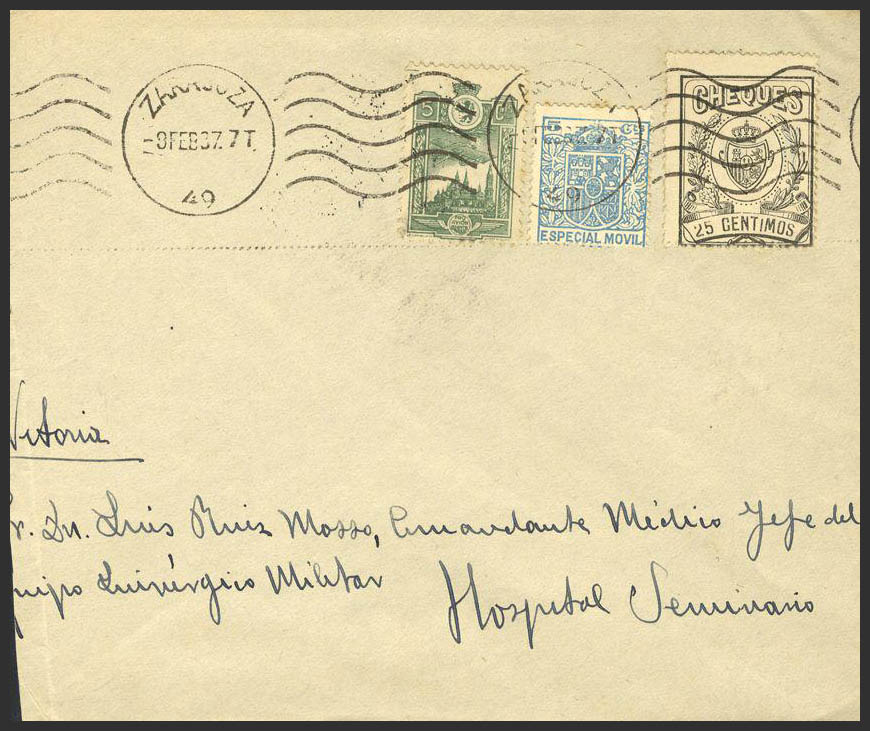 ZARAGOZA
-8FEB37.7T.
49
5 C
5 Cts
ESPECIAL MOVIL
CHEQUES
25 CENTIMOS
ZARAGOZA
49
Vitoria
Sr. Dn. Luis Ruiz Mosso, Comandante Médico Jefe del
quipo Quirúrgico Militar
Hospital Seminario